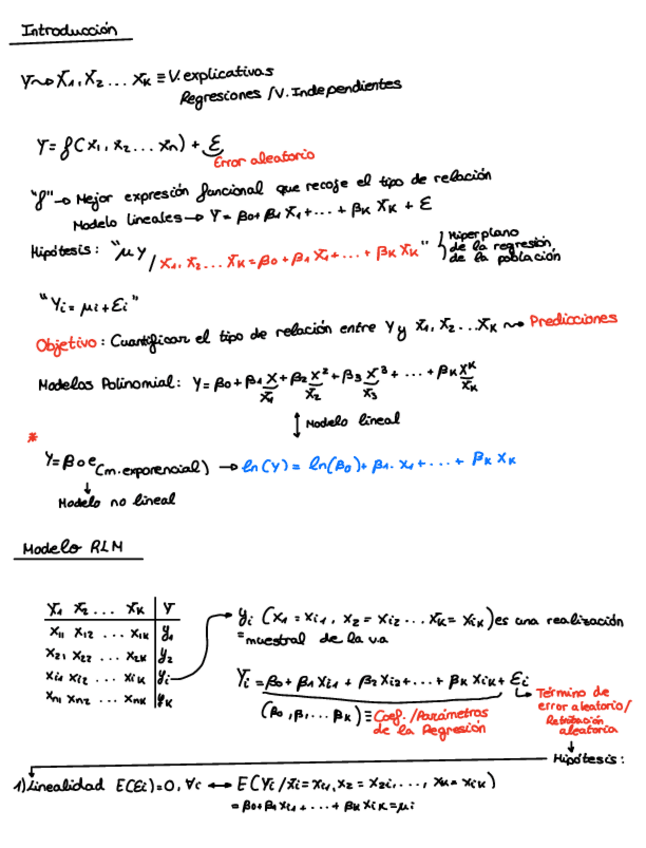 Introducción
Y ~> X1, X2 ... XK ≡ V. explicativas
Regresiones / V. Independientes
Y = f(x1, x2 ... xn) + ε
Error aleatorio
"f" → Mejor expresión funcional que recoje el tipo de relación
Modelo lineales → Y = β0 + β1 X1 + ... + βK XK + ε
Hipótesis: "μY / X1, X2 ... XK = β0 + β1 X1 + ... + βK XK" } Hiperplano
de la regresión
de la población
"Yi = μi + εi"
Objetivo: Cuantificar el tipo de relación entre Y y X1, X2 ... XK ~> Predicciones
Modelos Polinomial: Y = β0 + β1 X + β2 X² + β3 X³ + ... + βK X^K
X1 X2 X3 XK
↕ Modelo lineal
*
Y = β0 e (m. exponencial) → ln(Y) = ln(β0) + β1 · X1 + ... + βK XK
↓
Modelo no lineal
Modelo RLM
X1 X2 ... XK | Y
X11 X12 ... X1K | y1
X21 X22 ... X2K | y2
Xi1 Xi2 ... XiK | yi
Xn1 Xn2 ... XnK | yK
yi (X1 = Xi1, X2 = Xi2 ... XK = XiK) es una realización
= muestral de la v.a
Yi = β0 + β1 Xi1 + β2 Xi2 + ... + βK XiK + εi
(β0, β1, ... βK) ≡ Coef. / Parámetros
de la Regresión
↳ Término de
error aleatorio /
aleatoria
↓
Hipótesis:
1) Linealidad E(εi) = 0, ∀i ↔ E(Yi / Xi = Xi1, X2 = X2i, ..., XK = XiK)
= β0 + β1 Xi1 + ... + βK XiK = μi